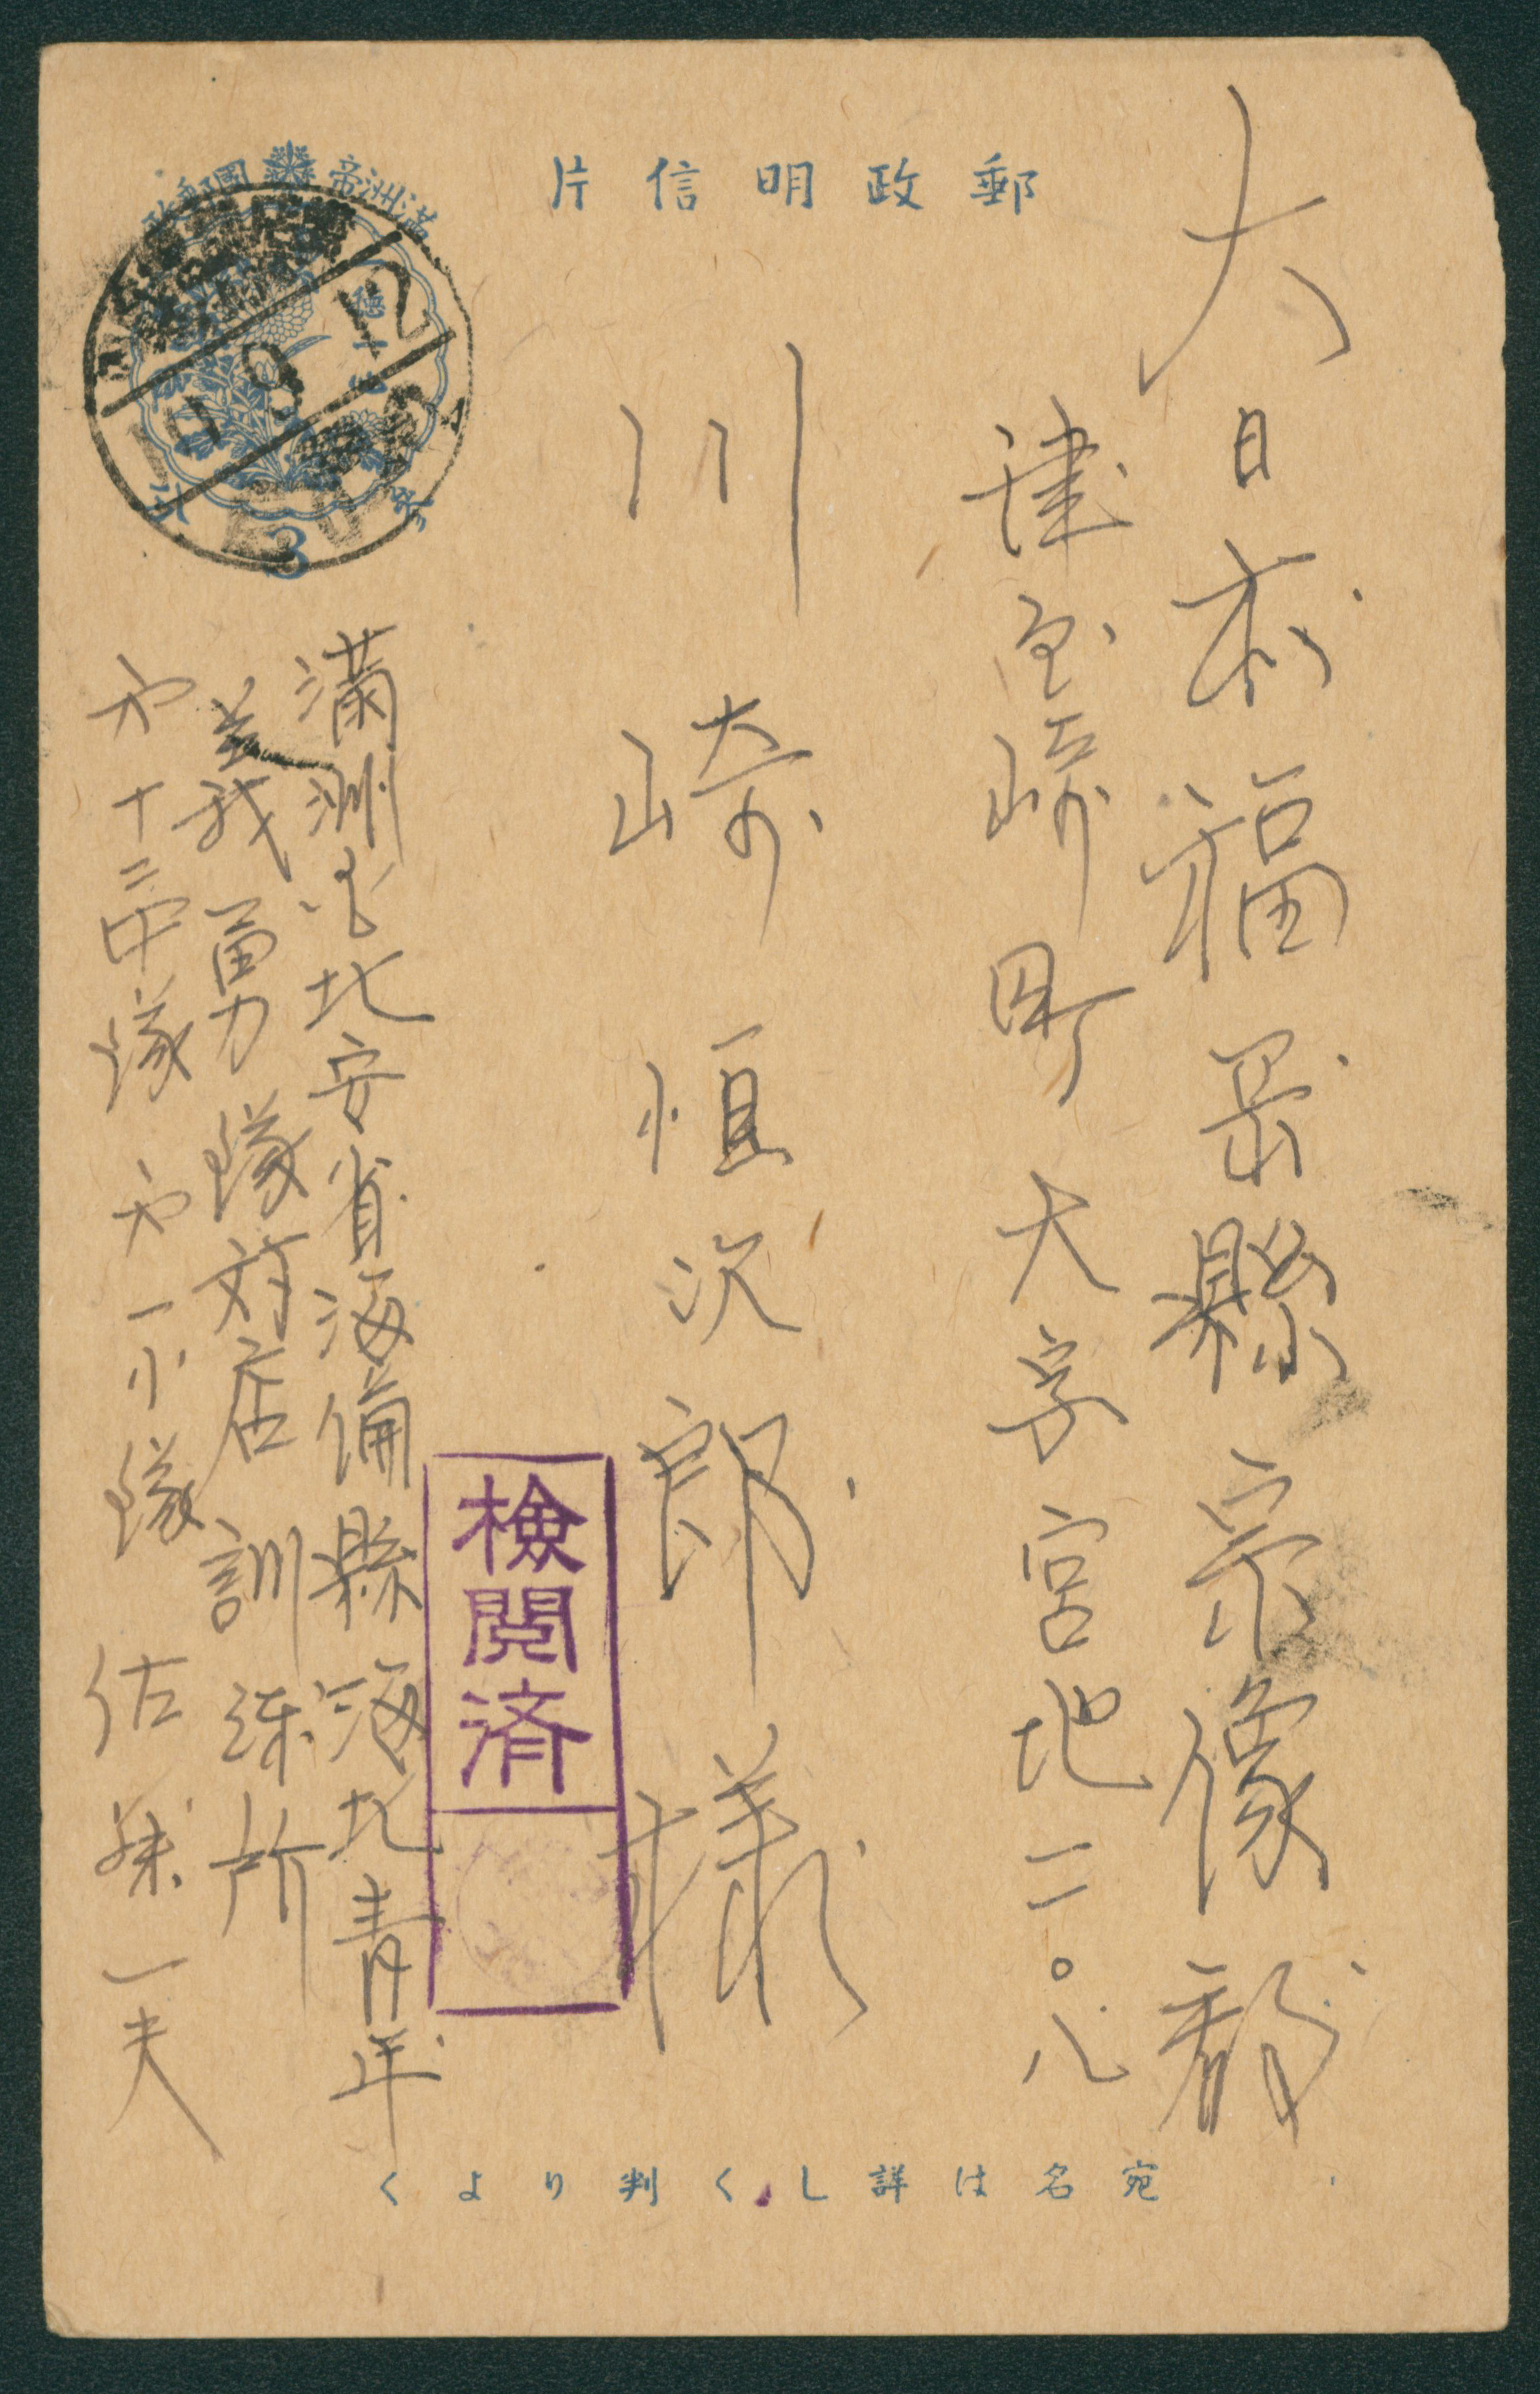 郵政明信片
大日本福岡縣宗像郡
津屋崎町大字宮地二〇八
川崎恒次郎様
検閲済
満洲国北安省海倫縣海北青年
義勇隊対店訓練所
才十二中隊才一小隊 佐藤一夫
満洲帝國郵政
9 12
3
宛名は詳しく判りよく